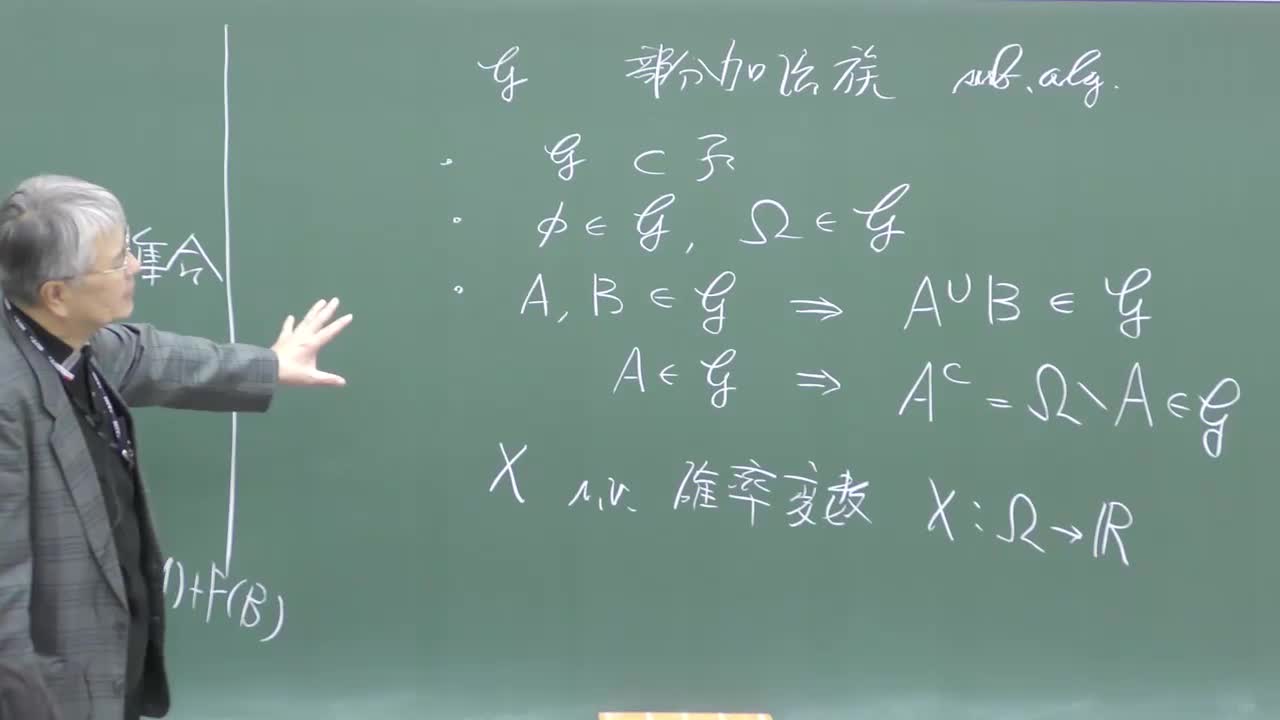 集合
)+P(B)
𝒢 部分加法族 sub. alg.
・ 𝒢 ⊂ ℱ
・ φ ∈ 𝒢, Ω ∈ 𝒢
・ A, B ∈ 𝒢 ⇒ A∪B ∈ 𝒢
A ∈ 𝒢 ⇒ Aᶜ = Ω∖A ∈ 𝒢
X r.v. 確率変数 X : Ω → ℝ